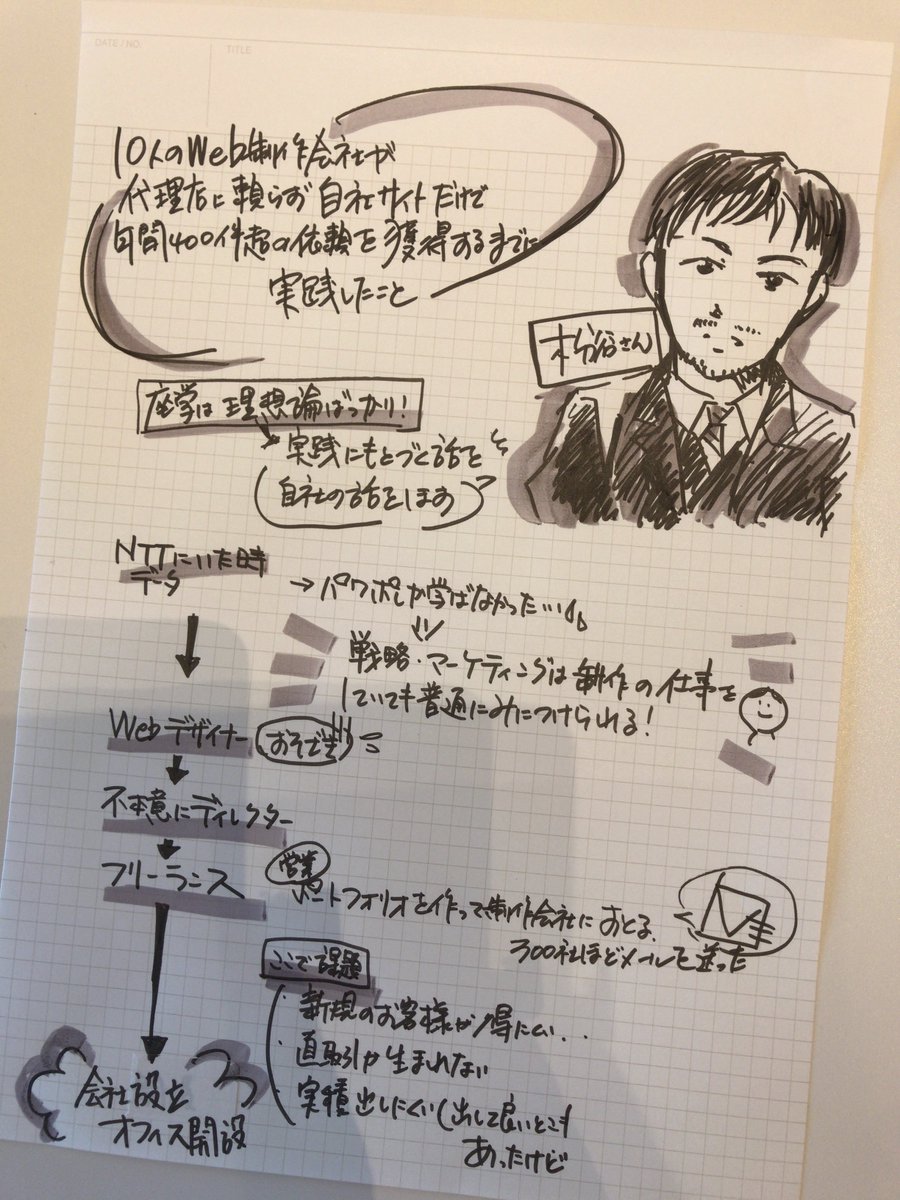 DATE / NO.
TITLE
10人のWeb制作会社が
代理店に頼らず自社サイトだけで
年間400件超の依頼を獲得するまでに
実践したこと
枌谷さん
座学は理想論ばっかり!
実践にもとづく話を
自社の話をします
NTTにいた時
データ
→パワポしか学ばなかった…
戦略・マーケティングは制作の仕事を
していても普通にみにつけられる!
Webデザイナー
おそざき
不本意にディレクター
フリーランス
営業
ポートフォリオを作って制作会社におくる
300社ほどメールを送った
ここで課題
・新規のお客様が得にくい..
・直取引が生まれない
・実績出しにくい(出して良いとこも
あったけど
会社設立
オフィス開設